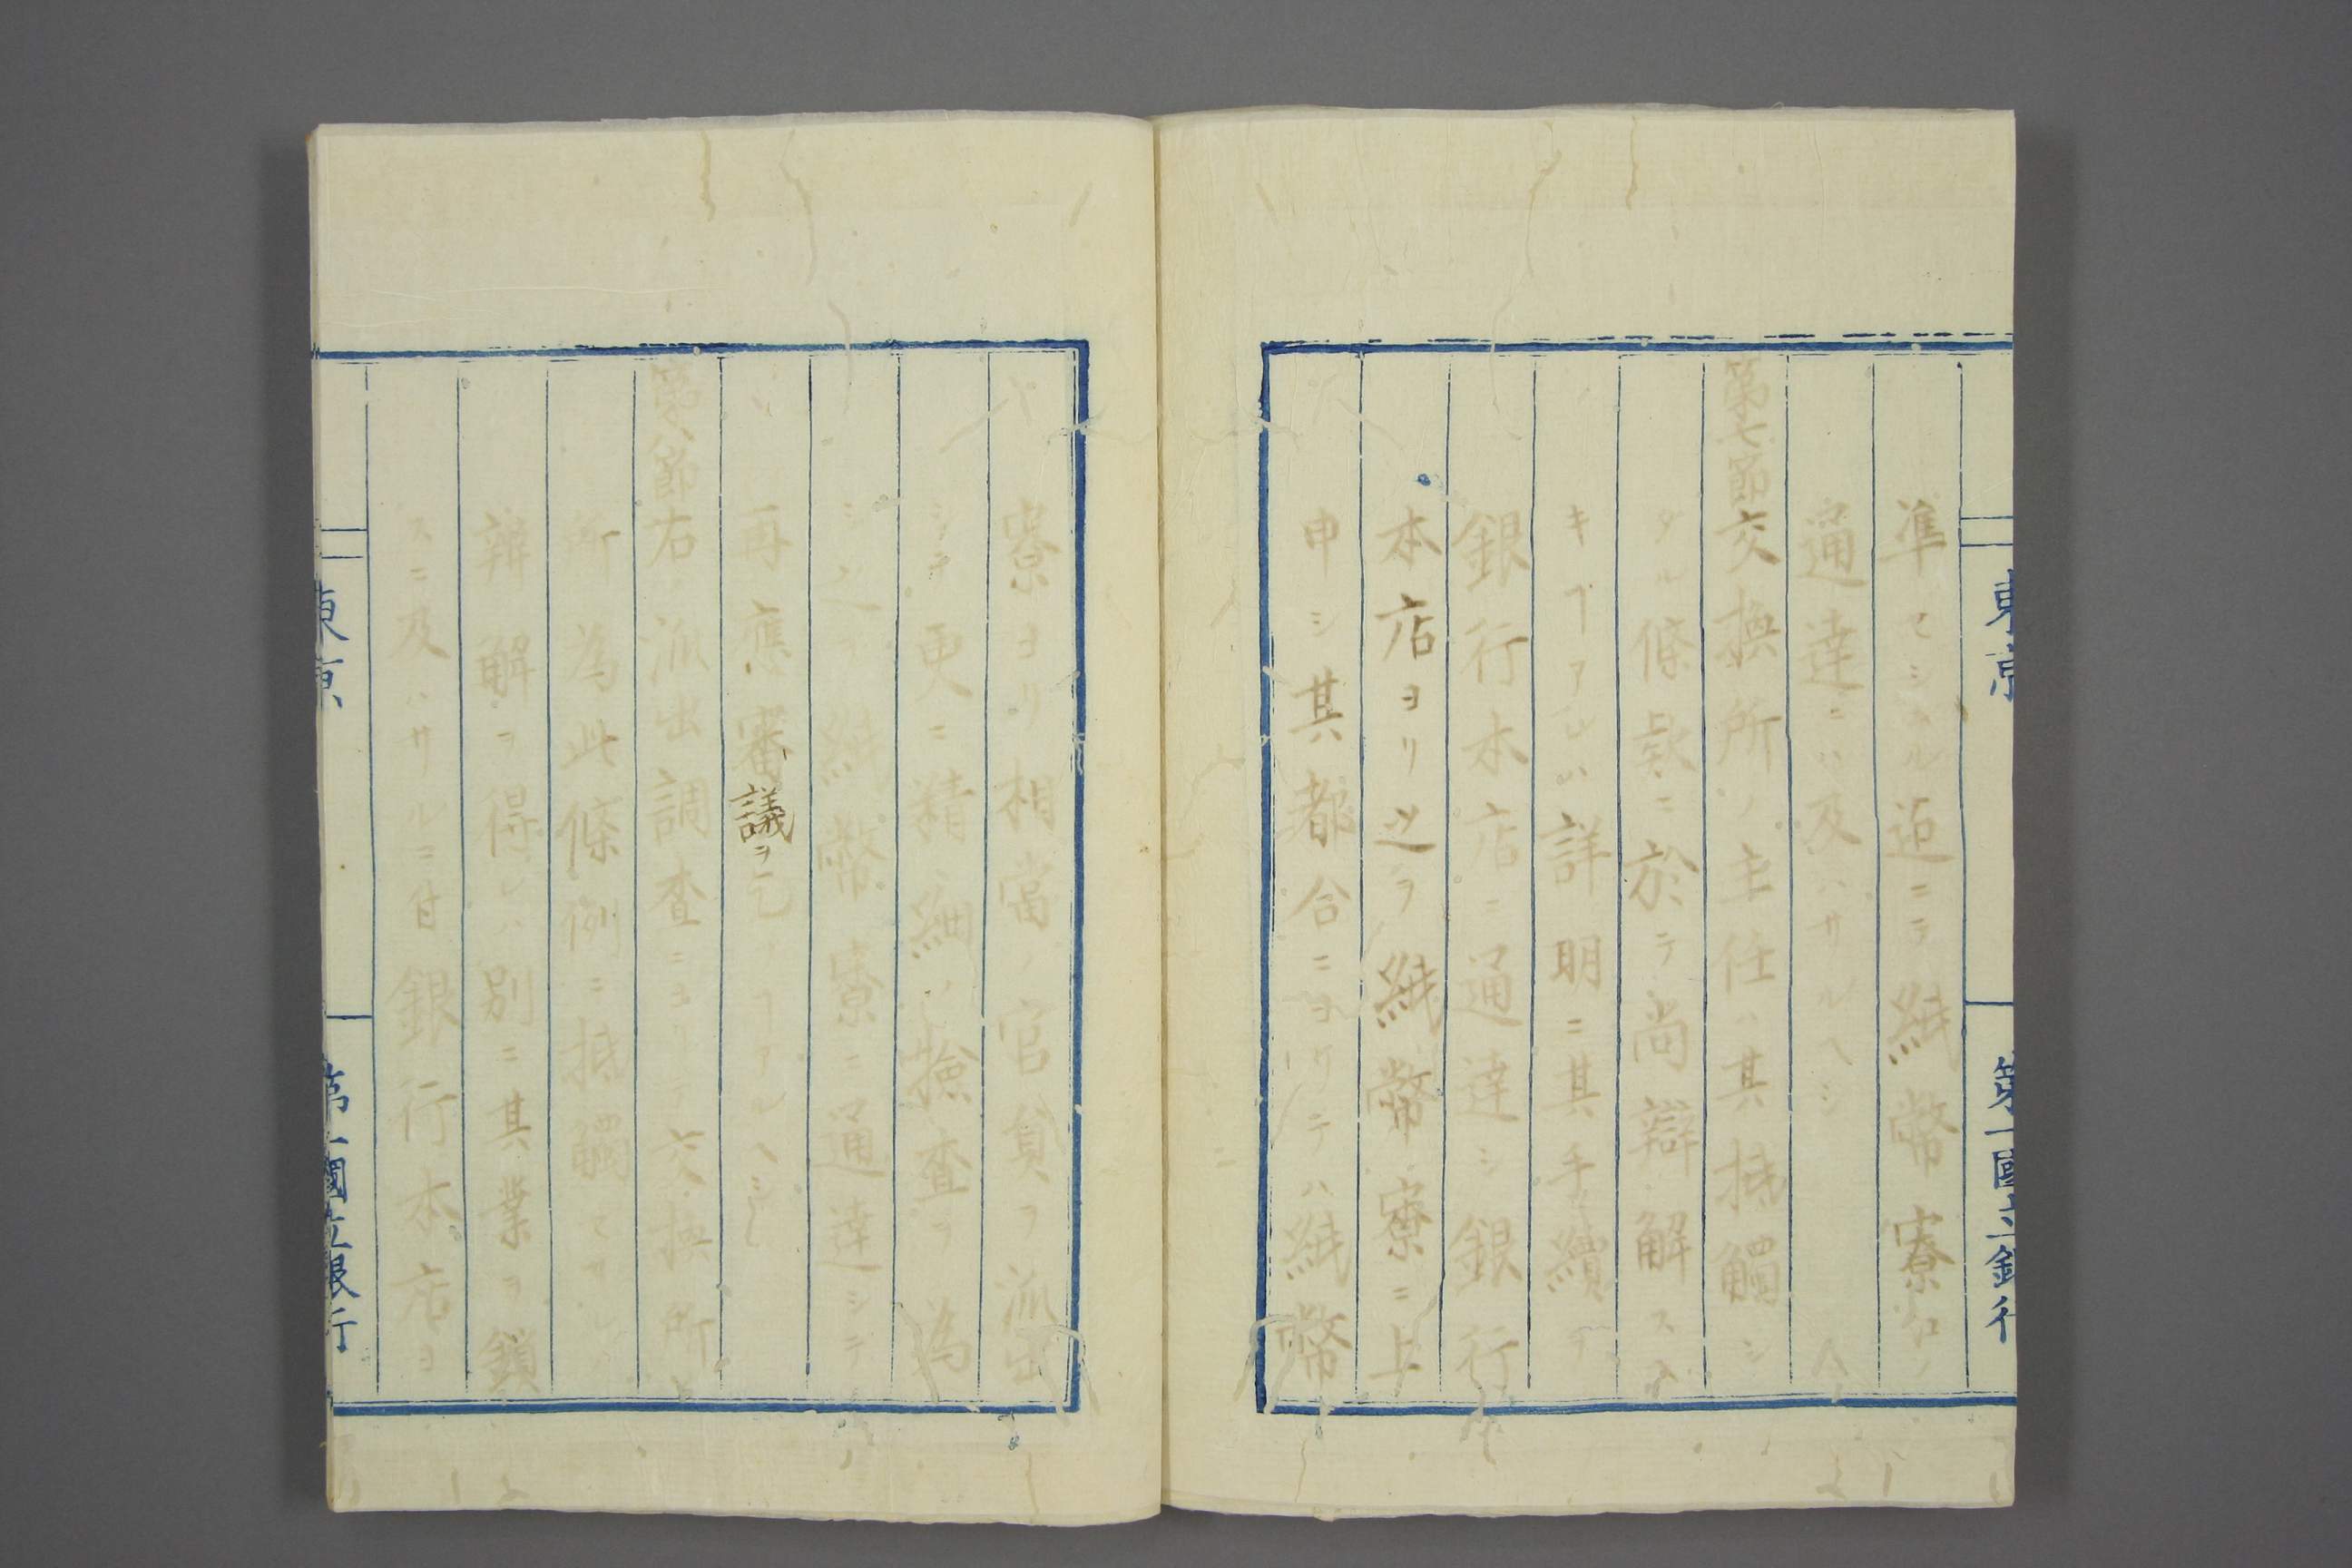 東京 第一國立銀行
準セシムル迄ニテ紙幣寮ヘノ
通達ニハ及ハサルヘシ
第七節交換所ノ主任ハ其抵觸シ
タル條款ニ於テ尚辯解スヘ
キヿアレハ詳明ニ其手續ヲ
銀行本店ニ通達シ銀行
本店ヨリ之ヲ紙幣寮ニ上
申シ其都合ニヨリテハ紙幣
寮ヨリ相當ノ官員ヲ派出
シテ更ニ精細ノ撿査ヲ為
シ之ヲ紙幣寮ニ通達シテ
再應審議ヲ乞フヿアルヘシ
第八節右ノ派出調査ニヨリテ交換所ノ
所為此條例ニ抵觸セサルノ
辨解ヲ得レハ別ニ其業ヲ鎖
スニ及ハサルニ付銀行本店ヨ
東京 第一國立銀行